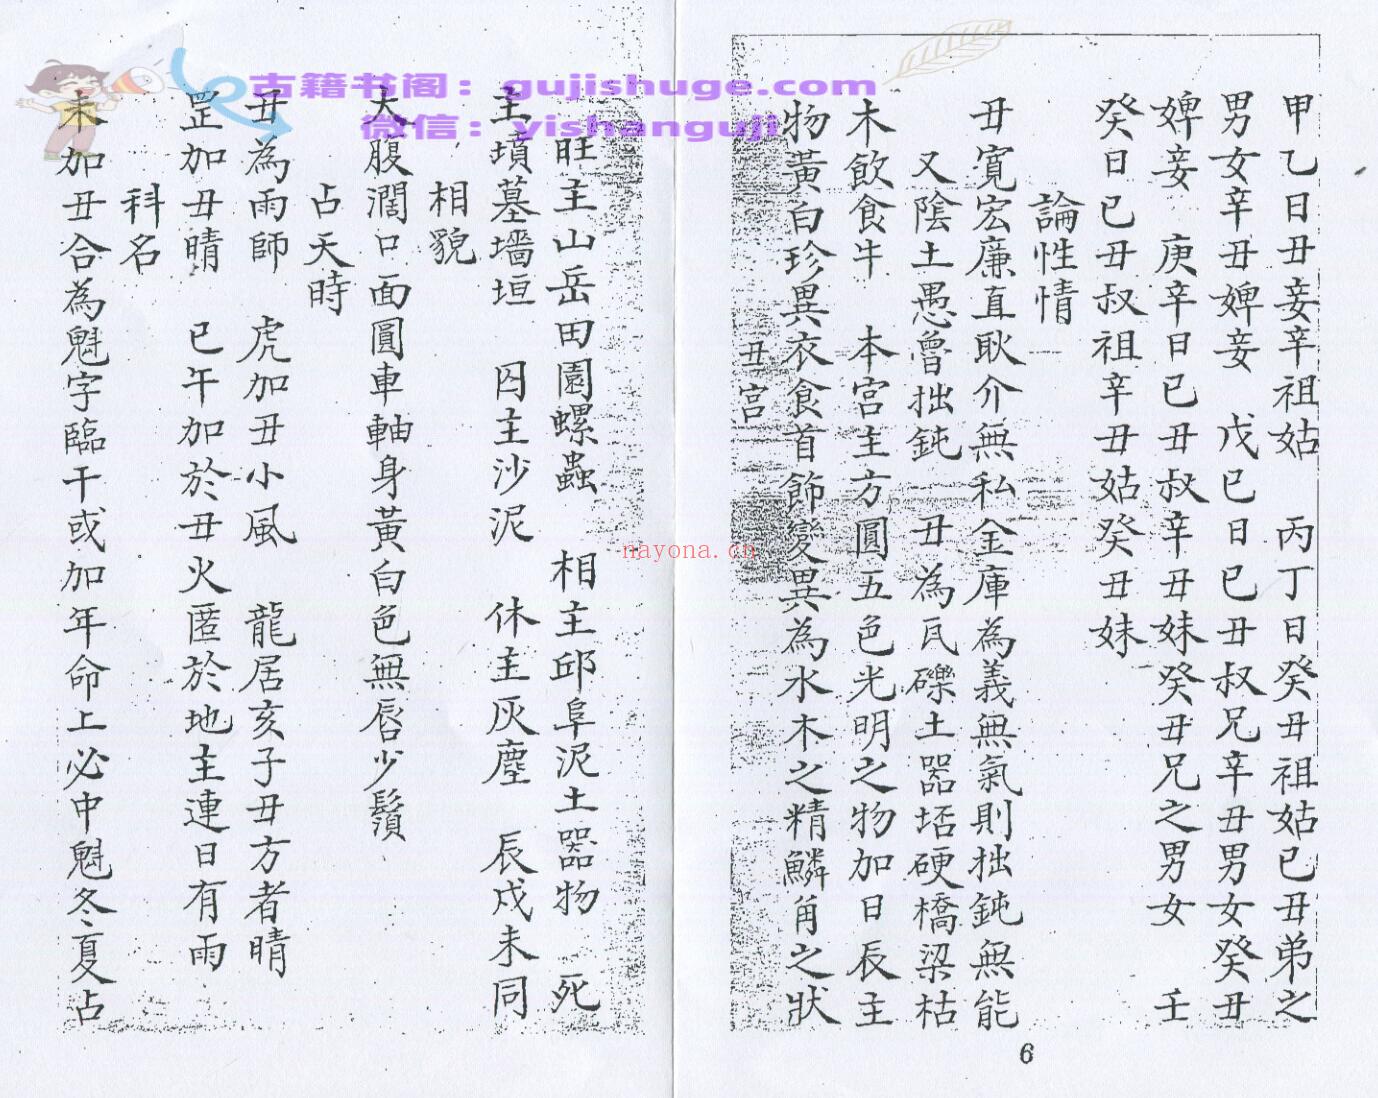 古籍书阁：gujishuge.com
微信：yishanguji
甲乙日丑妾辛祖姑　丙丁日癸丑祖姑己丑弟之
男女辛丑婢妾　戊己日己丑叔兄辛丑男女癸丑
婢妾　庚辛日己丑叔辛丑妹癸丑兄之男女　壬
癸日己丑叔祖辛丑姑癸丑妹
論性情
丑寬宏廉直耿介無私金庫為義無氣則拙鈍無能
又陰土愚魯拙鈍　丑為瓦礫土器坯硬橋梁枯
木飲食牛　本宮主方圓五色光明之物加日辰主
物黃白珍異衣食首飾變異為水木之精鱗角之狀
丑宮
6
旺主山岳田園螺蟲　相主邱阜泥土器物　死
主墳墓墻垣　囚主沙泥　休主灰塵　辰戌未同
相貌
大腹濶口面圓車軸身黃白色無唇少鬚
占天時
丑為雨師　虎加丑小風　龍居亥子丑方者晴
罡加丑晴　巳午加於丑火匿於地主連日有雨
科名
未加丑合為魁字臨干或加年命上必中魁冬夏占
nayona.cn